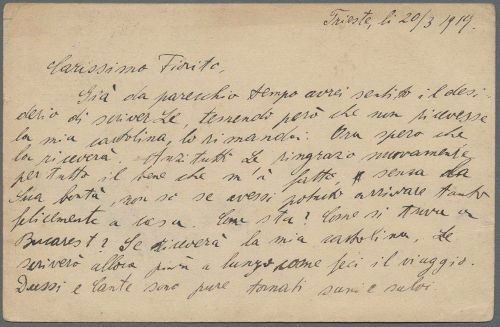 Trieste, li 20/3 1919.
Carissimo Fiorito,
Già da parecchio tempo avrei sentito il desi-
derio di scriverLe, temendo però che non ricevesse
la mia cartolina, lo rimandai. Ora spero che
la riceverà. Anzitutto La ringrazio nuovamente
per tutto il bene che m'à fatto, senza la
Sua bontà, non so se avessi potuto arrivare tanto
felicemente a casa. Come sta? Come si trova a
Bucarest? Se riceverà la mia cartolina, Le
scriverò allora più a lungo come feci il viaggio.
Dussi e Cante sono pure tornati sani e salvi.